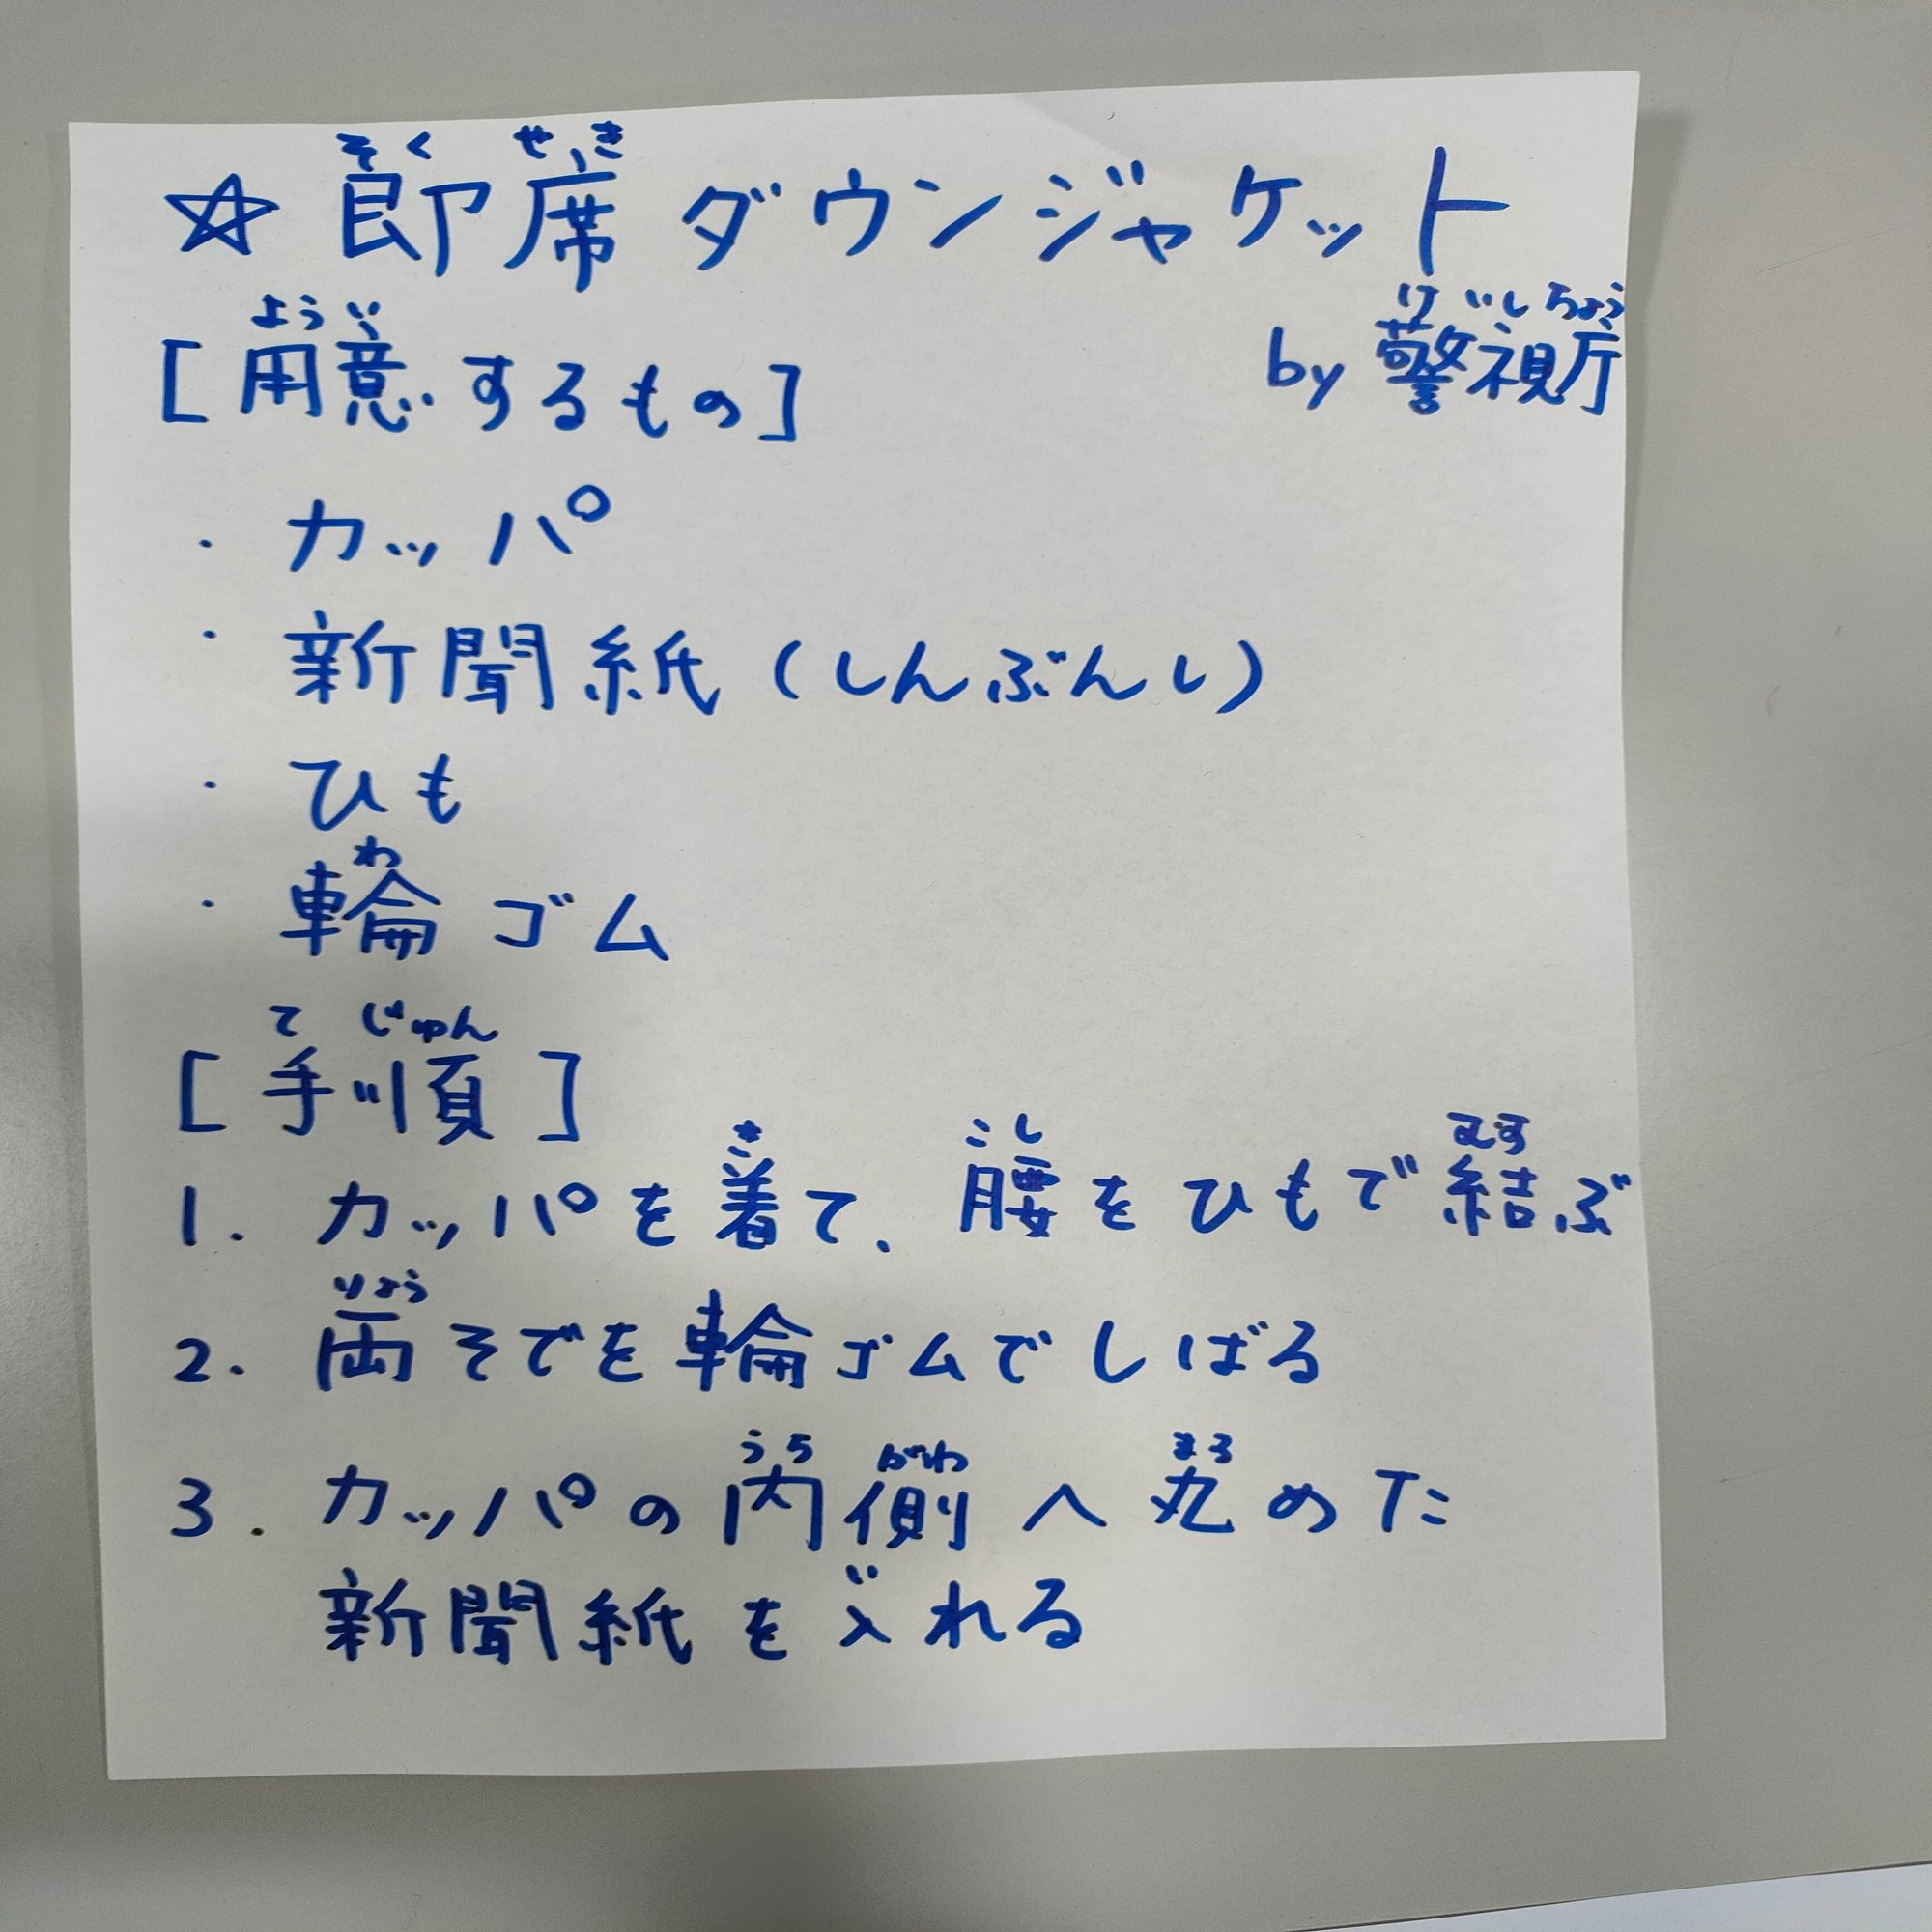 そくせき
☆ 即席ダウンジャケット
けいしちょう
by 警視庁
ようい
[用意するもの]
・カッパ
・新聞紙(しんぶんし)
・ひも
わ
・輪ゴム
てじゅん
[手順]
き こし むす
1. カッパを着て、腰をひもで結ぶ
りょう
2. 両そでを輪ゴムでしばる
うちがわ まる
3. カッパの内側へ丸めた
い
新聞紙を入れる